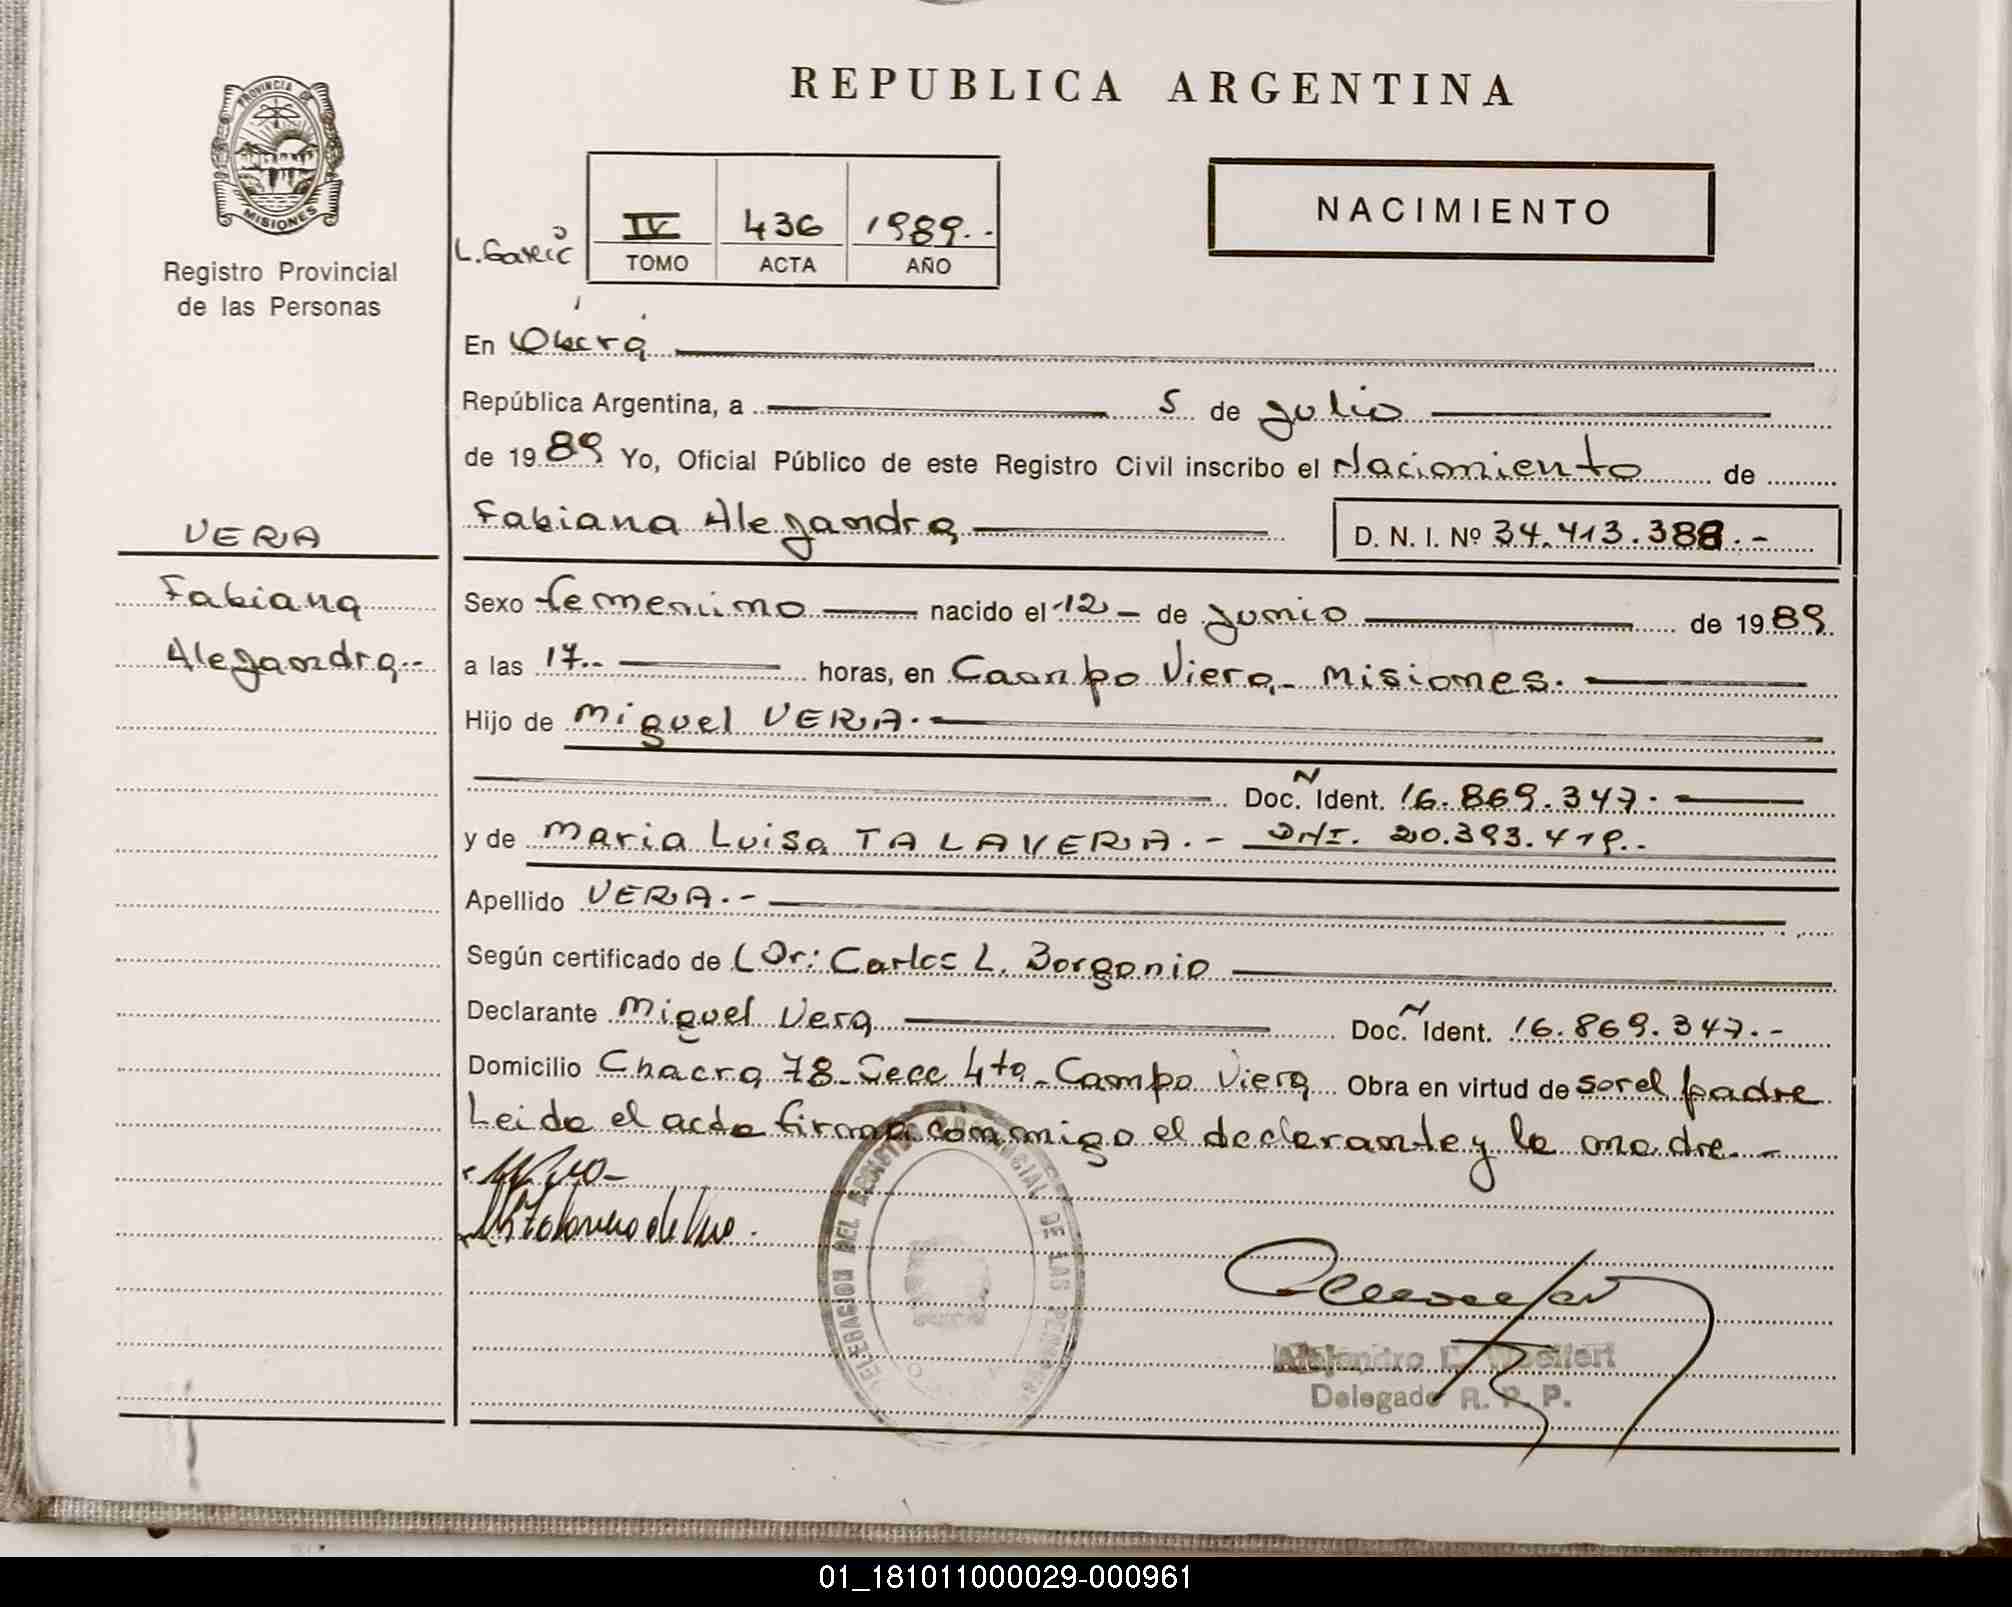 REPUBLICA ARGENTINA
PROVINCIA DE
MISIONES
Registro Provincial
de las Personas
IV 436 1989.-
TOMO ACTA AÑO
NACIMIENTO
En Oberá
República Argentina, a 5 de Julio
de 1989 Yo, Oficial Público de este Registro Civil inscribo el Nacimiento de
VERA
Fabiana
Alejandra.-
Fabiana Alejandra D. N. I. Nº 34.413.388.-
Sexo femenino nacido el 12 de Junio de 1989
a las 17.- horas, en Campo Viera - Misiones.
Hijo de Miguel VERA.
Doc. Ñ Ident. 16.869.347.
y de Maria Luisa TALAVERA.- DNI. 20.393.419.-
Apellido VERA.-
Según certificado de (Dr: Carlos L. Borgonio
Declarante Miguel Vera Doc. Ñ Ident. 16.869.347.-
Domicilio Chacra 78 - Secc 4ta - Campo Viera Obra en virtud de ser el padre
Leida el acta firma conmigo el declarante y la madre.-
DELEGACION DEL REGISTRO PROVINCIAL DE LAS PERSONAS
Alejandro
Delegado R. P. P.
01_181011000029-000961